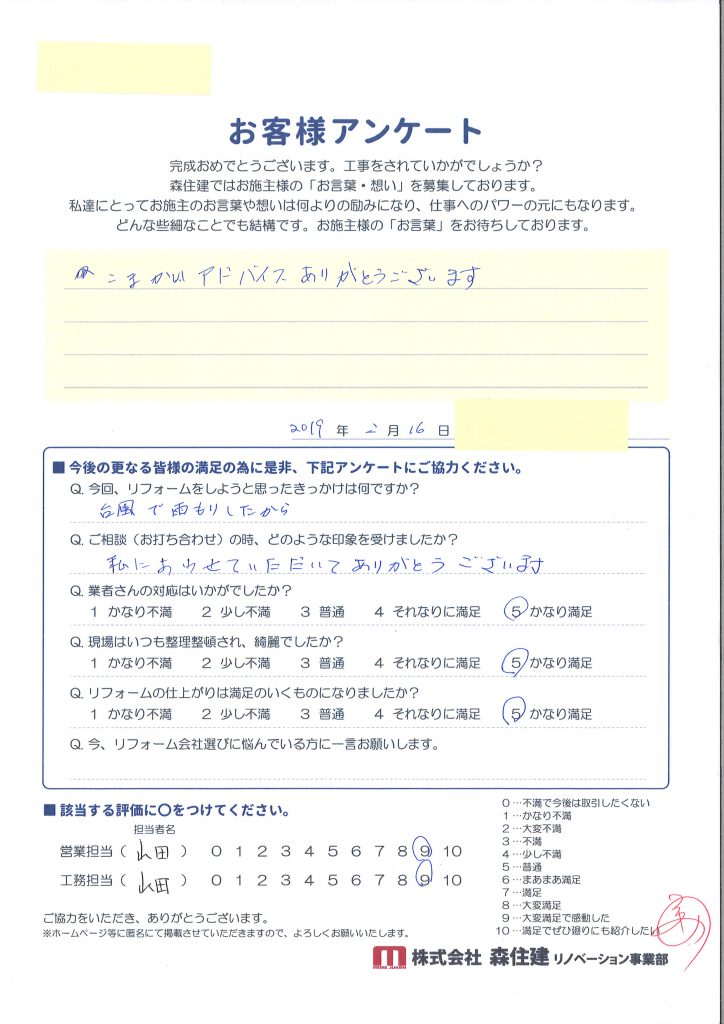 お客様アンケート
完成おめでとうございます。工事をされていかがでしょうか？
森住建ではお施主様の「お言葉・想い」を募集しております。
私達にとってお施主のお言葉や想いは何よりの励みになり、仕事へのパワーの元にもなります。
どんな些細なことでも結構です。お施主様の「お言葉」をお待ちしております。
こまかいアドバイスありがとうございます
2019 年 2 月 16 日
■ 今後の更なる皆様の満足の為に是非、下記アンケートにご協力ください。
Q. 今回、リフォームをしようと思ったきっかけは何ですか？
台風で雨もりしたから
Q. ご相談（お打ち合わせ）の時、どのような印象を受けましたか？
私にあわせていただいてありがとうございます
Q. 業者さんの対応はいかがでしたか？
1 かなり不満 2 少し不満 3 普通 4 それなりに満足 5 かなり満足
Q. 現場はいつも整理整頓され、綺麗でしたか？
1 かなり不満 2 少し不満 3 普通 4 それなりに満足 5 かなり満足
Q. リフォームの仕上がりは満足のいくものになりましたか？
1 かなり不満 2 少し不満 3 普通 4 それなりに満足 5 かなり満足
Q. 今、リフォーム会社選びに悩んでいる方に一言お願いします。
■ 該当する評価に〇をつけてください。
担当者名
営業担当（ 山田 ） 0 1 2 3 4 5 6 7 8 9 10
工務担当（ 山田 ） 0 1 2 3 4 5 6 7 8 9 10
0…不満で今後は取引したくない
1…かなり不満
2…大変不満
3…不満
4…少し不満
5…普通
6…まあまあ満足
7…満足
8…大変満足
9…大変満足で感動した
10…満足でぜひ廻りにも紹介したい
ご協力をいただき、ありがとうございます。
※ホームページ等に匿名にて掲載させていただきますので、よろしくお願いいたします。
MORI JUKEN 株式会社 森住建 リノベーション事業部